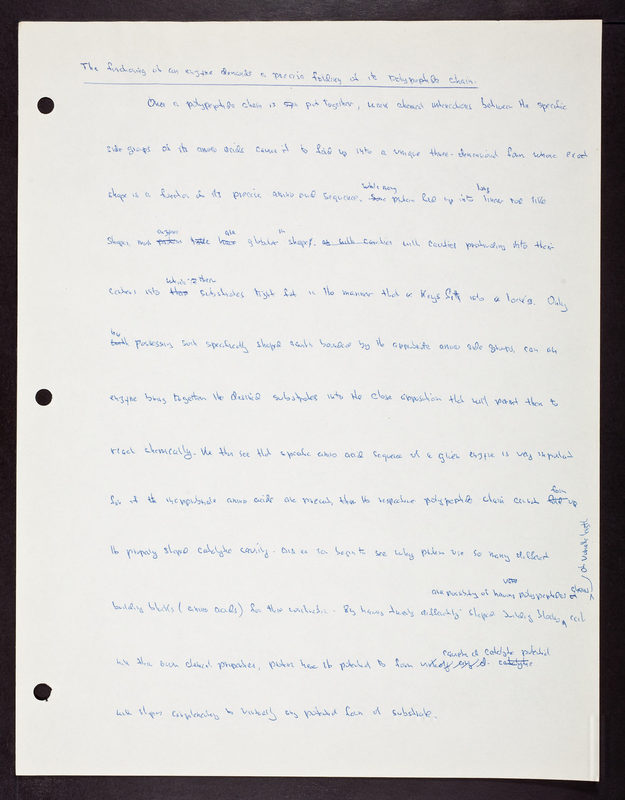 The functioning of an enzyme demands a precise folding of its Polypeptide Chain.
Once a polypeptide chain is put together, weak chemical interactions between the specific
side groups of its amino acids cause it to fold up into a unique three-dimensional form whose exact
shape is a function of its precise amino acid sequence. While many protein fold up into long linear rod like
shapes, most enzyme are globular in shape, with cavities protruding into their
centers into which their substrates might fit in the manner that a Keys fit into a lock's. Only
by possessing such specifically shaped bounded by the appropriate amino side groups, can an
enzyme bring together the desired substrates into the close apposition that will permit them to
react chemically. We thus see that specific amino acid sequence of a given enzyme is very important
for if the inappropriate amino acids are present, then the respective polypeptide chain cannot form
the properly shaped catalytic cavity. One can begin to see why protein use so many different
building blocks (amino acids) for their construction. By having twenty differently shaped building blocks, each
and the possibility of having polypeptides of virtually length
with their own chemical properties, protein have the potential to form catalytic potential
with shapes complementary to virtually any potential form of substrate.